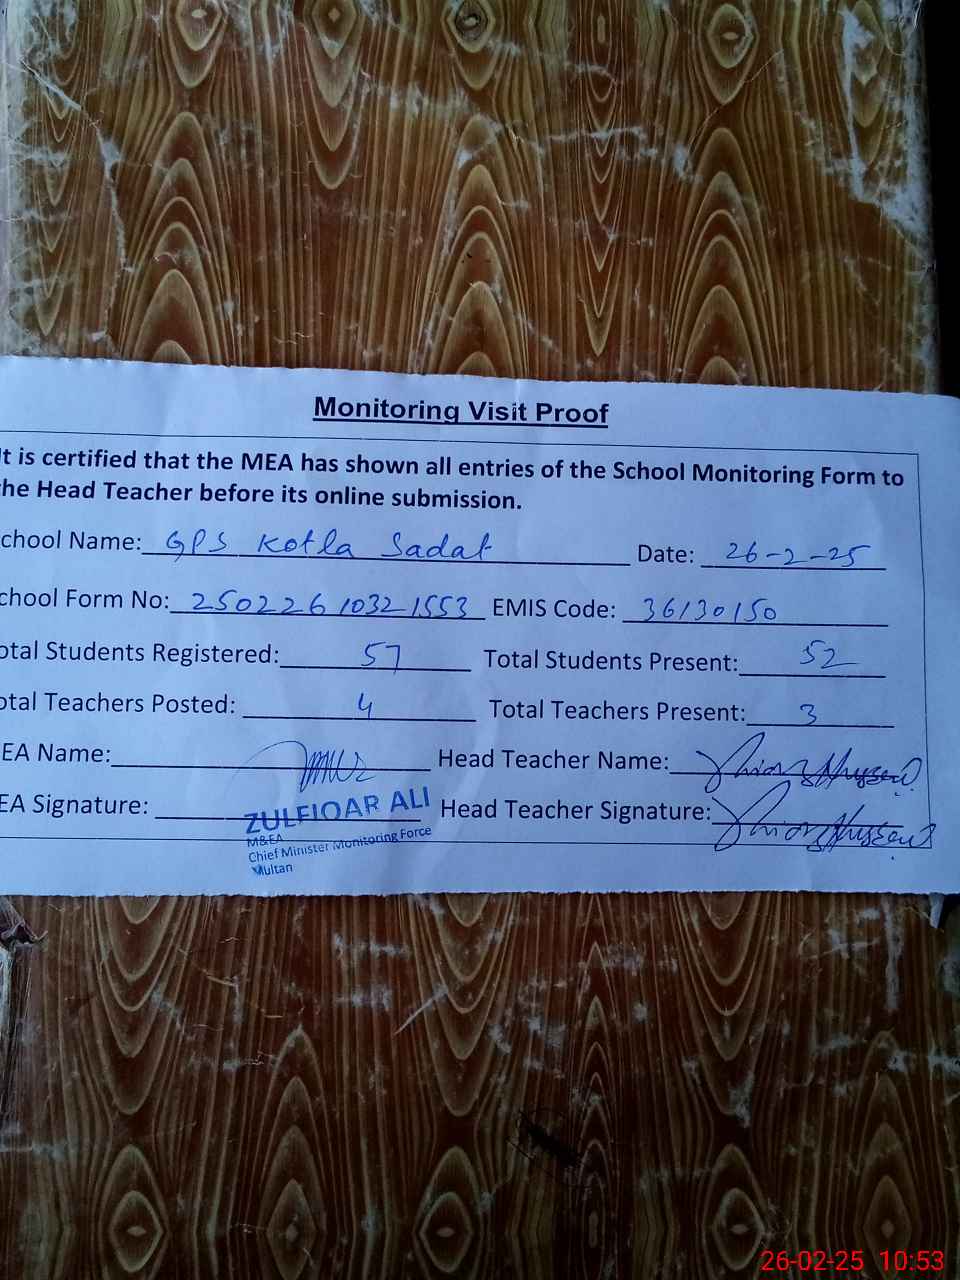 Monitoring Visit Proof
It is certified that the MEA has shown all entries of the School Monitoring Form to
he Head Teacher before its online submission.
chool Name: GPS Kotla Sadat Date: 26-2-25
chool Form No: 250226 1032 1553 EMIS Code: 36130150
otal Students Registered: 57 Total Students Present: 52
otal Teachers Posted: 4 Total Teachers Present: 3
EA Name: Head Teacher Name:
EA Signature: Head Teacher Signature:
ZULFIQAR ALI
M&EA
Chief Minister Monitoring Force
Multan
26-02-25 10:53